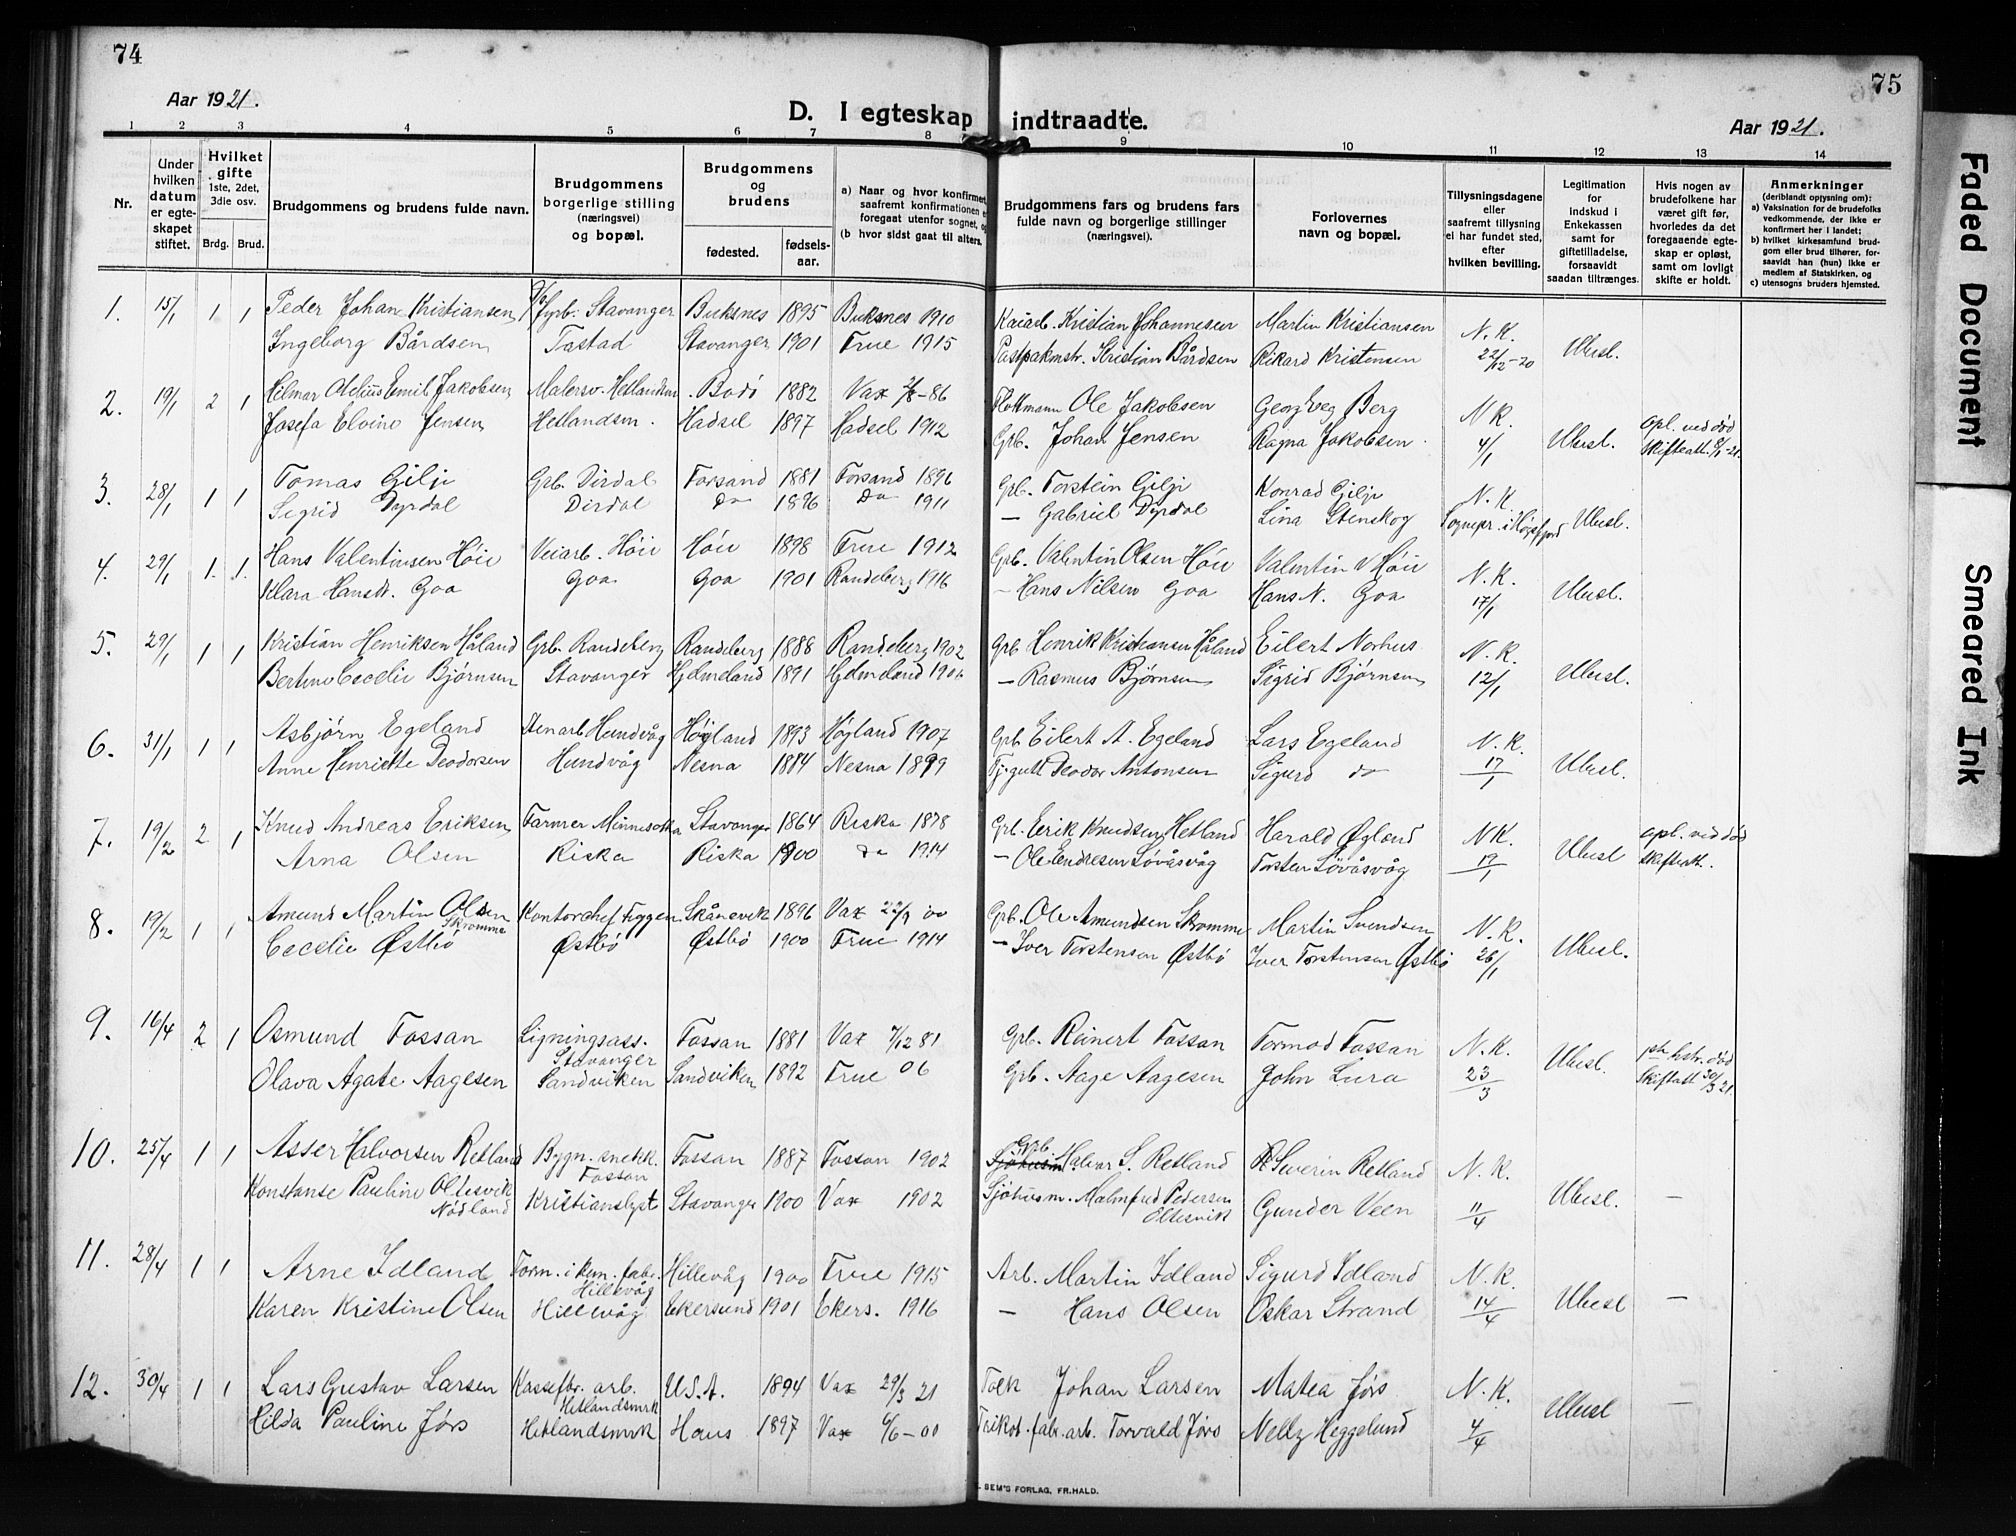 74
75
Aar 1921.
D. I egteskap indtraadte.
Aar 1921.
1 2 3 4 5 6 7 8 9 10 11 12 13 14
Nr.
Under hvilken datum er egteskapet stiftet.
Hvilket gifte 1ste, 2det, 3die osv.
Brdg. Brud.
Brudgommens og brudens fulde navn.
Brudgommens borgerlige stilling (næringsvei) og bopæl.
Brudgommens og brudens
fødested. fødselsaar.
a) Naar og hvor konfirmert, saafremt konfirmationen er foregaat utenfor sognet, og
(b hvor sidst gaat til alters.
Brudgommens fars og brudens fars fulde navn og borgerlige stillinger (næringsvei).
Forlovernes navn og bopæl.
Tillysningsdagene eller saafremt tillysning ei har fundet sted, efter hvilken bevilling.
Legitimation for indskud i Enkekassen samt for giftetilladelse, forsaavidt saadan tiltrænges.
Hvis nogen av brudefolkene har været gift før, hvorledes da det foregaaende egteskap er opløst, samt om lovlig skifte er holdt.
Anmerkninger (deriblandt opjysning om):
a) Vaksination for de brudefolks vedkommende, der ikke er konfirmert her i landet;
b) hvilket kirkesamfund brudgom eller brud tilhører, forsaavidt han (hun) ikke er medlem af Statskirken, og
c) utensogns bruders hjemsted.
1. 15/1 1 1 Peder Johan Kristiansen fyrb. Stavanger Buksnes 1895 Buksnes 1910 Kaiarb. Kristian Johannesen Martin Kristiansen N. K.
Ingeborg Bårdsen Tastad Stavanger 1901 Frue 1915 Kristian Bårdsen Rikard Kristensen 22/12-20 Ubesl.
2. 19/1 2 1 Hilmar Emil Jakobsen Malersv. Hetlandsm. Bodø 1882 Vax -86 Ole Jakobsen Georg Berg N K. opl. ved død
Josefa Elvine Jensen Hetlandsm. Hadsel 1897 Hadsel 1912 Grb. Johan Jensen Ragna Jakobsen 4/1 Ubesl. Skifteatt. 8/1-21.
3. 28/1 1 1 Tomas Gilje Grb. Dirdal Forsand 1881 Forsand 1896 Grb. Torstein Gilje Konrad Gilje N. K.
Sigrid Dyrdal Dirdal do 1896 do 1911 — Gabriel Dyrdal Lina Stenskog Sognepr. i Høgsfjord Ubesl.
4. 29/1 1. 1. Hans Valentinsen Høie Veiarb. Høie Høie 1898 Frue 1912 Grb. Valentin Olsen Høie Valentin V Høie N. K.
Klara Hansd. Goa Goa Goa 1901 Randeberg 1916 — Hans Nilsen Goa Hans N. Goa 17/1 Ubesl.
5. 29/1 1 1 Kristian Henriksen Håland Grb. Randeberg Randeberg 1888 Randeberg 1902 Grb. Henrik Kristiansen Håland Eilert Norhus N. K.
Bertine Cecelie Bjørnsen Stavanger Hjelmeland 1891 Hjelmeland 1906 — Rasmus Bjørnsen Sigrid Bjørnsen 12/1 Ubesl.
6. 31/1 1 1 Asbjørn Egeland Stenarb Hundvåg Høyland 1893 Høyland 1907 Grb Eilert A. Egeland Lars Egeland N. K.
Anne Henriette Deodorsen Hundvåg Nesna 1884 Nesna 1899 Deodor Antonsen Sigurd do 17/1 Ubesl.
7. 19/2 2 1 Knud Andreas Eriksen Farmer Minnesotha Stavanger 1864 Riska 1878 Grb. Eerik Knudsen Hetland Harald Øgland N K. opl. ved død
Arna Olsen Riska Riska 1900 do 1914 — Ole Endresen Løvåsvåg Torsten Løvåsvåg 19/1 Ubesl Skifteatt.
8. 19/2 1 1 Amund Martin Olsen Skromme Kontorchef Figgen Skånevik 1896 Vax 22/9 00 Grb. Ole Amundsen Skromme Martin Svendsen N. K.
Cecelie Østbø Østbø Østbø 1900 Frue 1914 — Iver Torstensen Østbø Iver Torstensen Østbø 26/1 Ubesl.
9. 16/4 2 1 Osmund Fossan Ligningsass. Stavanger Fossan 1881 Vax 7/12 81 Grb. Reinert Fossan Tormod Fossan N. K. død
Olava Agate Aagesen Sandviken Sandviken 1892 Frue 06 Grb. Aage Aagesen John Lura 23/3 Ubesl. Skifteatt 30/3 21.
10. 25/4 1 1 Asser Halvorsen Retland Bygn. snekk. Fossan Fossan 1887 Fossan 1902 Grb. Halvor S. Retland Severin Retland N. K.
Konstanse Pauline Oltesvik Nødland Kristianslyst Stavanger 1900 Vax 1902 Sjøhusm. Malmfred Pedersen Oltesvik Gunder Veen 11/4 Ubesl. —
11. 28/4 1 1 Arne Idland Form. i kem. fabr. Hillevåg Hillevåg 1900 Frue 1915 Arb. Martin Idland Sigurd Idland N. K.
Karen Kristine Olsen Hillevåg Ekersund 1901 Ekers. 1916 — Hans Olsen Oskar Strand 14/4 Ubesl —
12. 30/4 1 1 Lars Gustav Larsen Kassefbr. arb. Hetlandsmrk U.S.A. 1894 Vax 29/3 21 Johan Larsen Matea Jørs N. K.
Hilda Pauline Jørs Hetlandsmrk Haus 1897 Vax 6/6-00 Trikot. fabr. arb. Torvald Jørs Nelly Heggelund 4/4 Ubesl —
SEM'S FORLAG, FR.HALD.
Faded Document
Smeared Ink